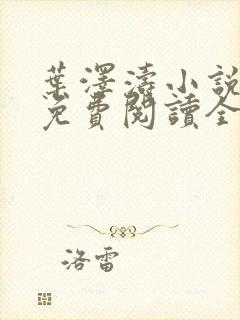 葉澤濤小說
免費閱讀全
洛雷